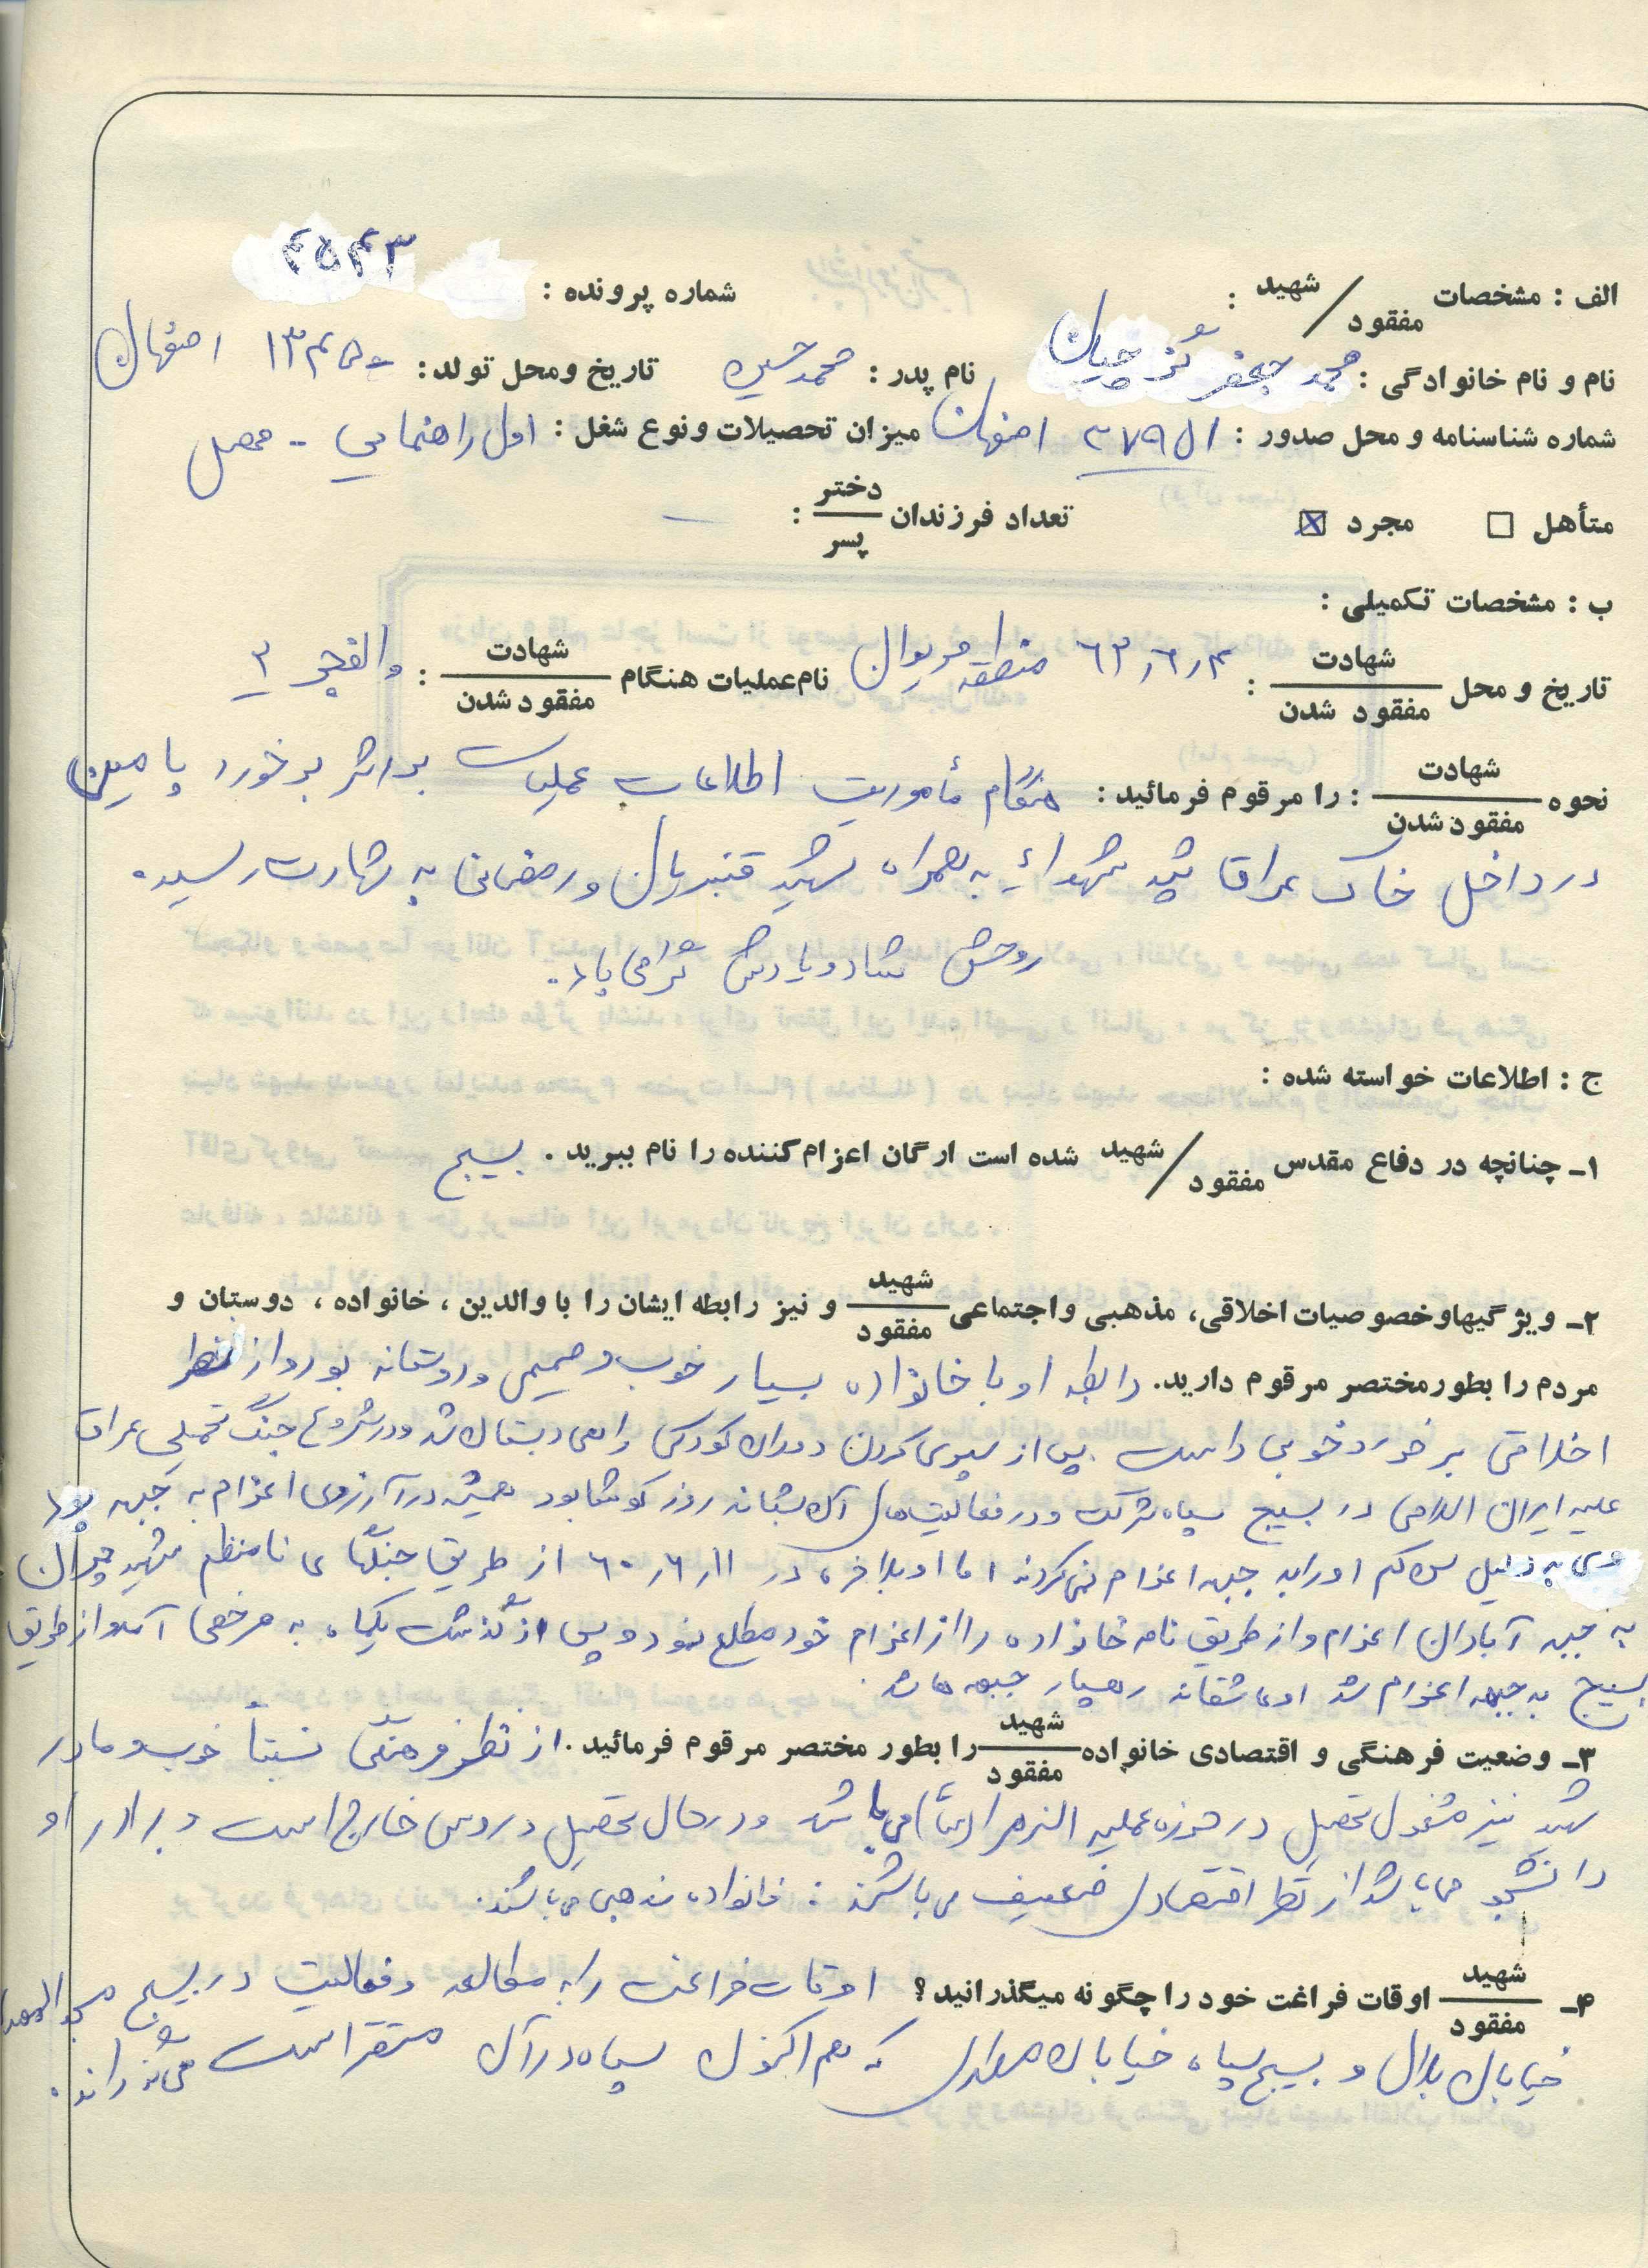 الف : مشخصات شهید / مفقود :
شماره پرونده :
نام و نام خانوادگی : محمد جعفر گزچیان نام پدر : محمد حسین تاریخ ومحل تولد : اصفهان
شماره شناسنامه و محل صدور : اصفهان میزان تحصیلات ونوع شغل : اول راهنمایی - محصل
متأهل ☐ مجرد ☒ تعداد فرزندان دختر / پسر : —
ب : مشخصات تکمیلی :
تاریخ و محل شهادت / مفقود شدن : ۶۳٫۶٫۴ منطقه مریوان نام عملیات هنگام شهادت / مفقود شدن : والفجر
نحوه شهادت / مفقود شدن : را مرقوم فرمائید : هنگام مأموریت اطلاعات عملیات بر اثر برخورد با مین
در داخل خاک عراق به همراه شهید و رمضانی به شهادت رسید.
روحش شاد و یادش گرامی باد.
ج : اطلاعات خواسته شده :
۱ـ چنانچه در دفاع مقدس شهید / مفقود شده است ارگان اعزام کننده را نام ببرید . بسیج
۲ـ ویژگیها و خصوصیات اخلاقی، مذهبی و اجتماعی شهید / مفقود و نیز رابطه ایشان را با والدین ، خانواده ، دوستان و
مردم را بطور مختصر مرقوم دارید. رابطه او با خانواده بسیار خوب و صمیمی و دوستانه بود و از نظر
اخلاقی برخورد خوبی داشت . پس از سپری کردن دوران کودکی راهی دبستان شد و در شروع جنگ تحمیلی عراق
علیه ایران اسلامی در بسیج سپاه شرکت و در فعالیت های آن شبانه روز کوشا بود همیشه در آرزوی اعزام به جبهه بود
ولی به دلیل سن کم او را به جبهه اعزام نمی کردند اما او بالاخره در ۶۰٫۶٫۱۱ از طریق جنگهای نامنظم شهید چمران
به جبهه آبادان اعزام و از طریق نامه خانواده را از اعزام خود مطلع نمود و پس از گذشت یکماه به مرخصی آمد و از طریق
بسیج به جبهه اعزام شد او عاشقانه رهسپار جبهه ها شد .
۳ـ وضعیت فرهنگی و اقتصادی خانواده شهید / مفقود را بطور مختصر مرقوم فرمائید . از نظر فرهنگی نسبتاً خوب و مادر
شهید نیز مشغول تحصیل در حوزه علمیه الزهرا (س) می باشد و در حال تحصیل دروس خارج است و برادر او
دانشجو می باشد از نظر اقتصادی ضعیف می باشند : خانواده مذهبی می باشند.
۴ـ شهید / مفقود اوقات فراغت خود را چگونه میگذرانید ؟ اوقات فراغت را به مطالعه و فعالیت در بسیج مسجد
خیابان بلال و بسیج سپاه خیابان که هم اکنون سپاه در آن مستقر است می گذراند.